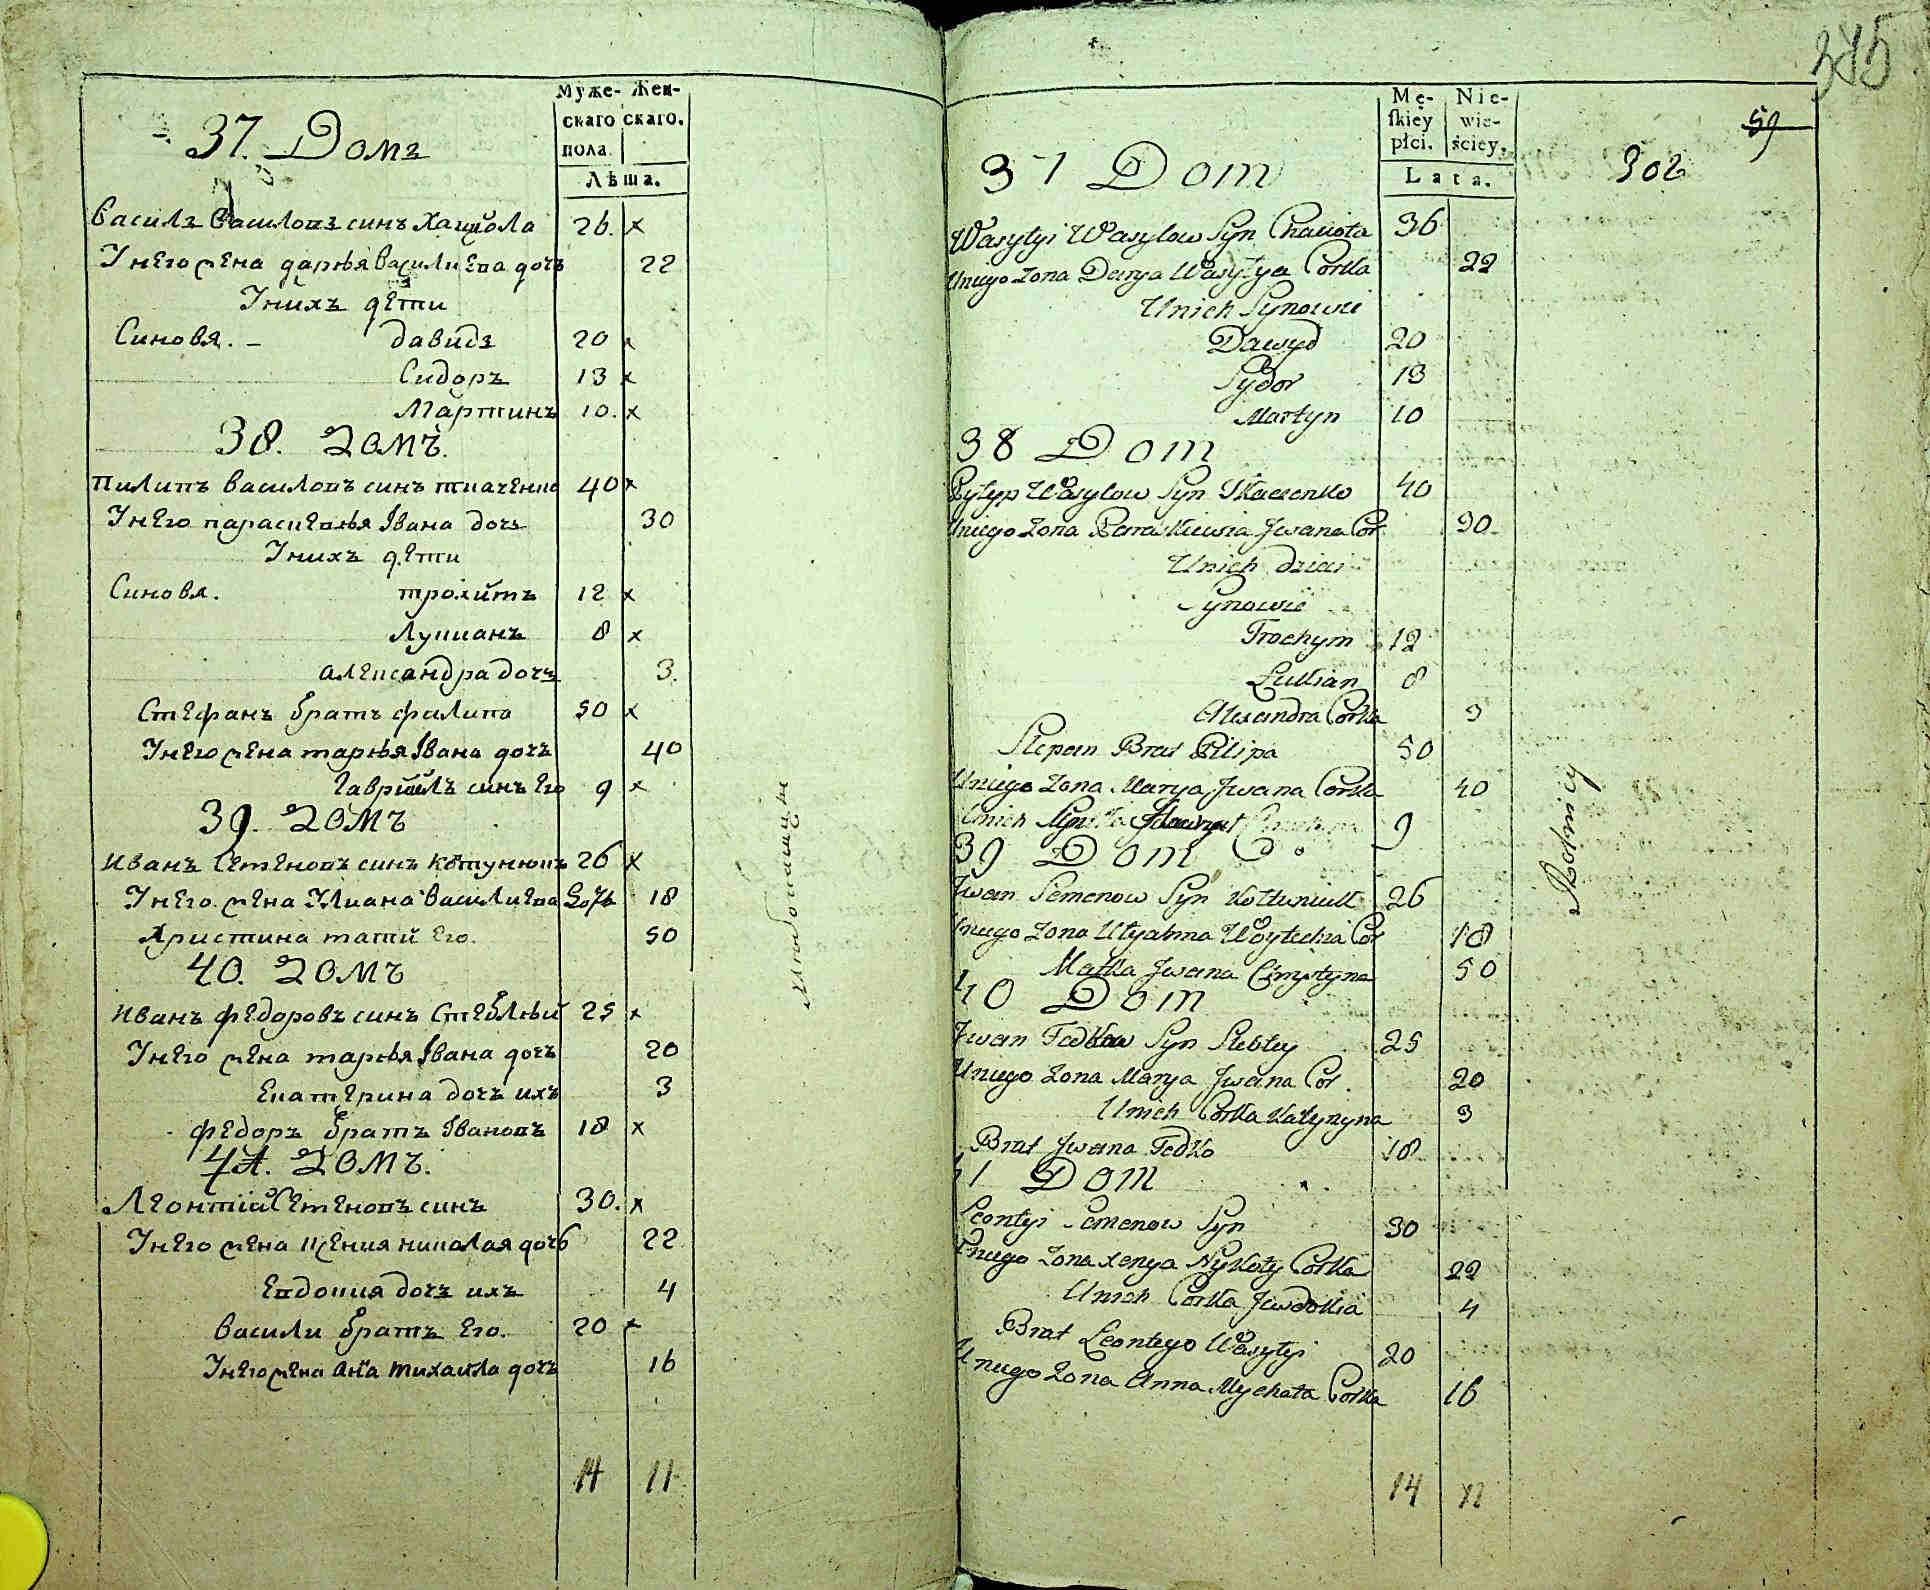 Муже- Жен-
скаго скаго.
пола.
Лѣта.
37. Домъ
Василъ Василовъ синъ Хащола 26. x
У него жена дарѣя Василиева дочъ 22
У нихъ дѣти
Синовя. - давидъ 20 x
Сидоръ 13 x
Мартинъ 10. x
38. Домъ.
пилипъ василовъ синъ ткаченко 40 x
У него параскевѣя Iвана дочъ 30
У нихъ дѣти
Синовя. трохимъ 12 x
Лукианъ 8 x
александра дочъ 3.
Стефанъ братъ филипа 50 x
У него жена марѣя Iвана дочъ 40
Гаврийлъ синъ Его 9 x
39. Домъ
иванъ Семеновъ синъ 26 x
У него жена Улиана Василиева дочъ 18
Христина мати Его. 50
40. Домъ
иванъ федоровъ синъ Стеблѣй 25 x
У него жена марѣя Iвана дочъ 20
Екатерина дочъ ихъ 3
федоръ братъ Iвановъ 18 x
41. Домъ.
Леонтій Семеновъ синъ 30. x
У него жена ксения николая дочъ 22
Евдокия дочъ ихъ 4
васили братъ Его. 20 x
У него жена Анна михаила дочъ 16
14 11
хлѣбопашцы
345
59
302
Mę- Nie-
skiey wie-
płci. ściey.
Lata.
37 Dom
Wasylyi Wasylow Syn 36
Uniego Zona Darya Wasylya Corka 22
Unich Synowie
Dawyd 20
Sydor 13
Martyn 10
38 Dom
Pylyp Wasylow Syn Tkaczenko 40
Uniego Zona Paraskiewia Jwana Cor. 30
Unich dzieci
Synowie
Trochym 12
Lukian 8
Alexandra Corka 3
Stepan Brat Pilipa 50
Uniego Zona Marya Jwana Corka 40
Unich Syn 9
39 Dom
Jwan Semenow Syn Kołtuniuk 26
Uniego Zona Ulyanna Cor 18
Matka Jwana Chrystyna 50
40 Dom
Jwan Fedkow Syn Stebley 25
Uniego Zona Marya Jwana Cor. 20
Unich Corka Kateryna 3
Brat Jwana Fedko 18
41 Dom
Leontyi Semenow Syn 30
Uniego Zona Xenya Nykoły Corka 22
Unich Corka Jewdokia 4
Brat Leontego Wasylyi 20
Uniego Zona Anna Mychała Corka 16
14 11
Rolnicy